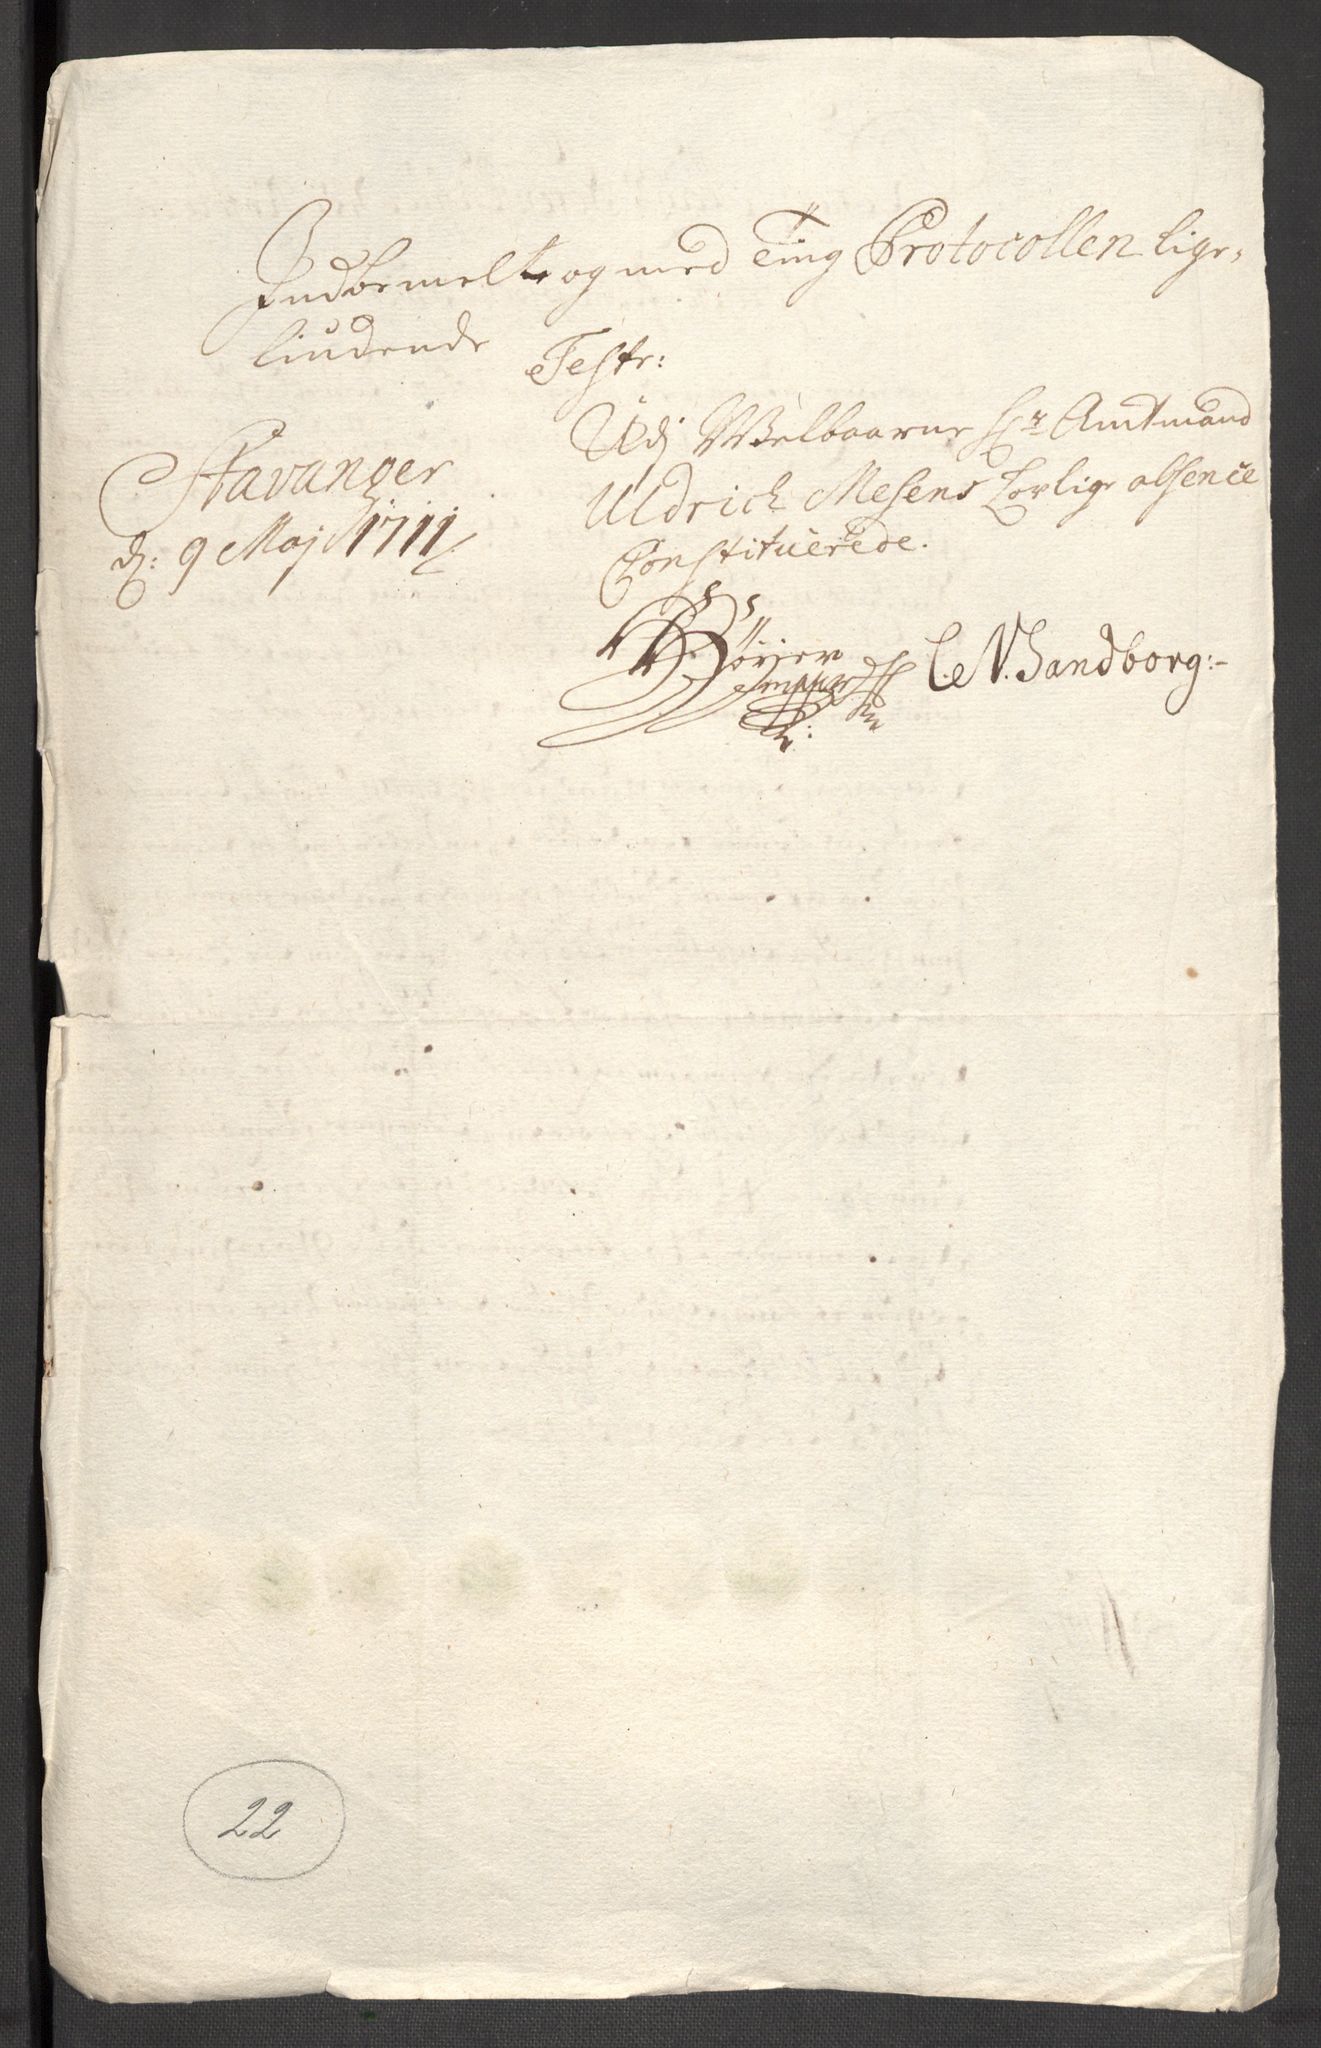 Indbemelte og med Ting Protocollen lige-
liudende
Teste:
Stavanger
d: 9 Maj 1711
Udj Welbaarne Hr Amtmand
Uldrich Mesens Lovlige absence
Constituerede.
C. N. Sandborg:-
22